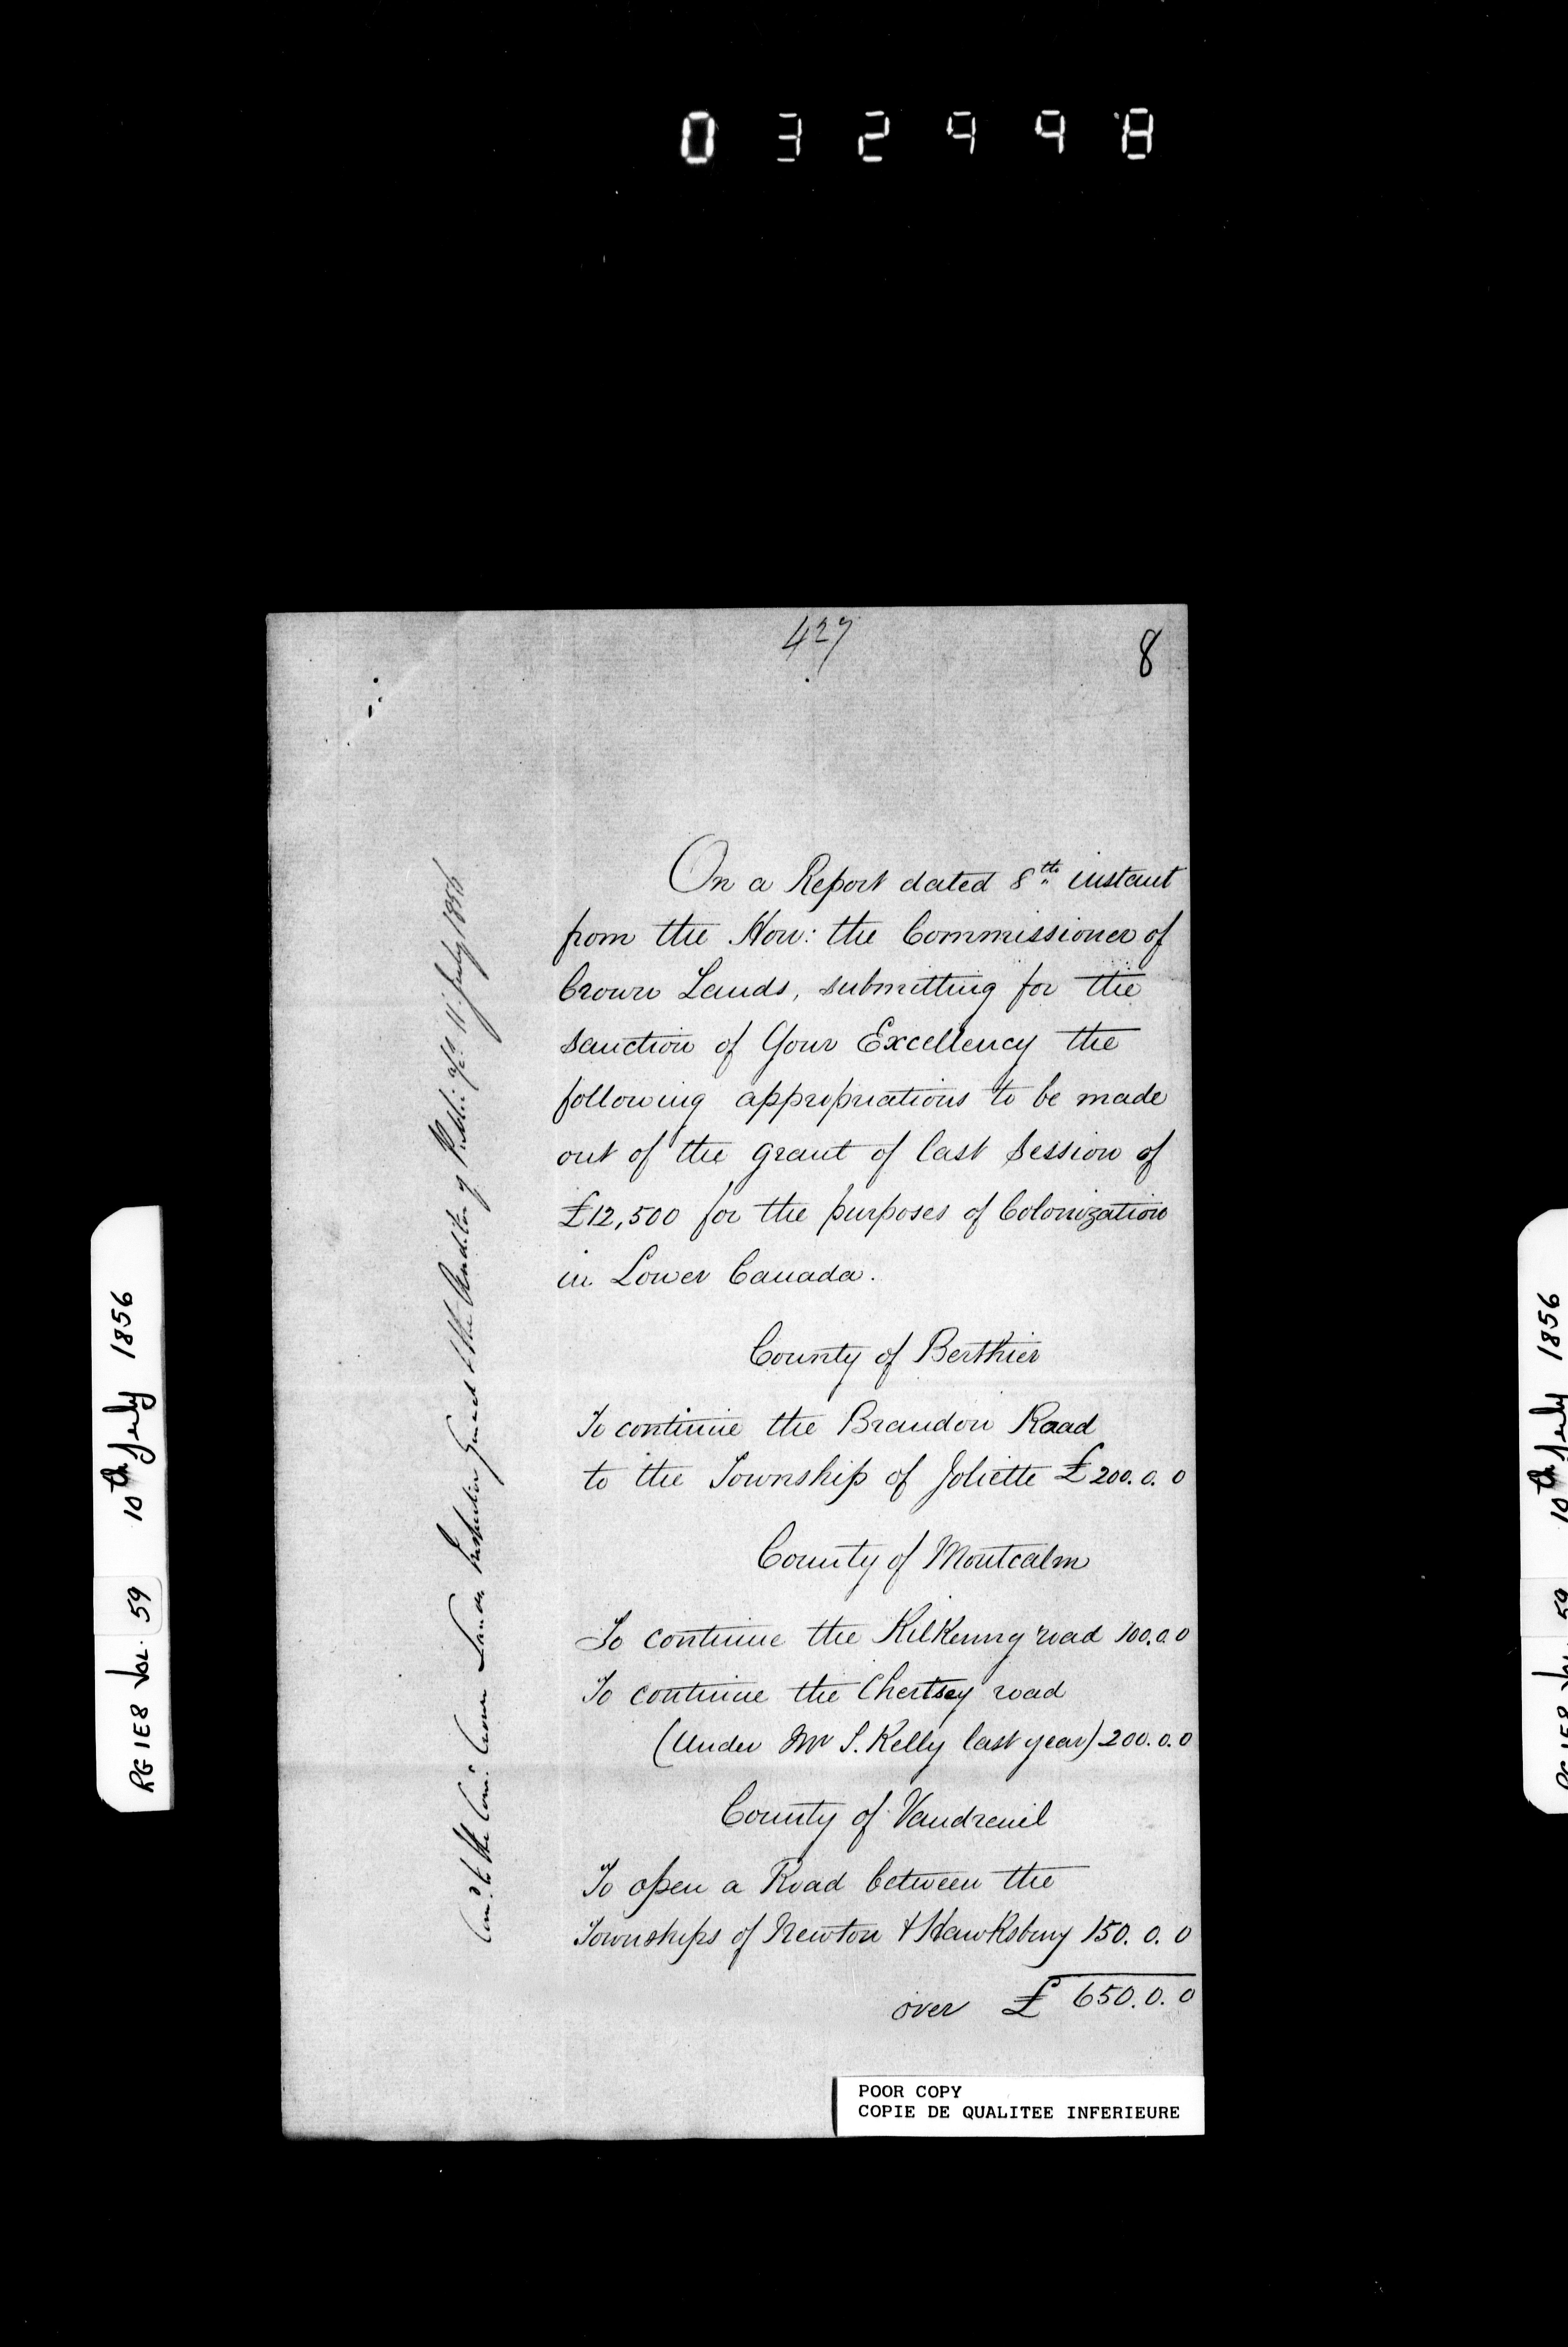 032998
427
8
On a Report dated 8th instant
from the Hon: the Commissioner of
Crown Lands, submitting for the
sanction of Your Excellency the
following appropriations to be made
out of the grant of last Session of
£12,500 for the purposes of Colonization
in Lower Canada.
County of Berthier
To continue the Brandon Road
to the Township of Joliette £200.0.0
County of Montcalm
To continue the Kilkenny road 100.0.0
To continue the Chertsey road
(Under Mr S. Kelly last year) 200.0.0
County of Vaudreuil
To open a Road between the
Townships of Newton & Hawksbury 150.0.0
over £ 650.0.0
Com.d to the Com.r Crown Lands Inspector General & the Auditor of Public 11 July 1856
POOR COPY
COPIE DE QUALITEE INFERIEURE
RG 1E8 Vol. 59 10th July 1856
RG 1E8 Vol 59 10th July 1856